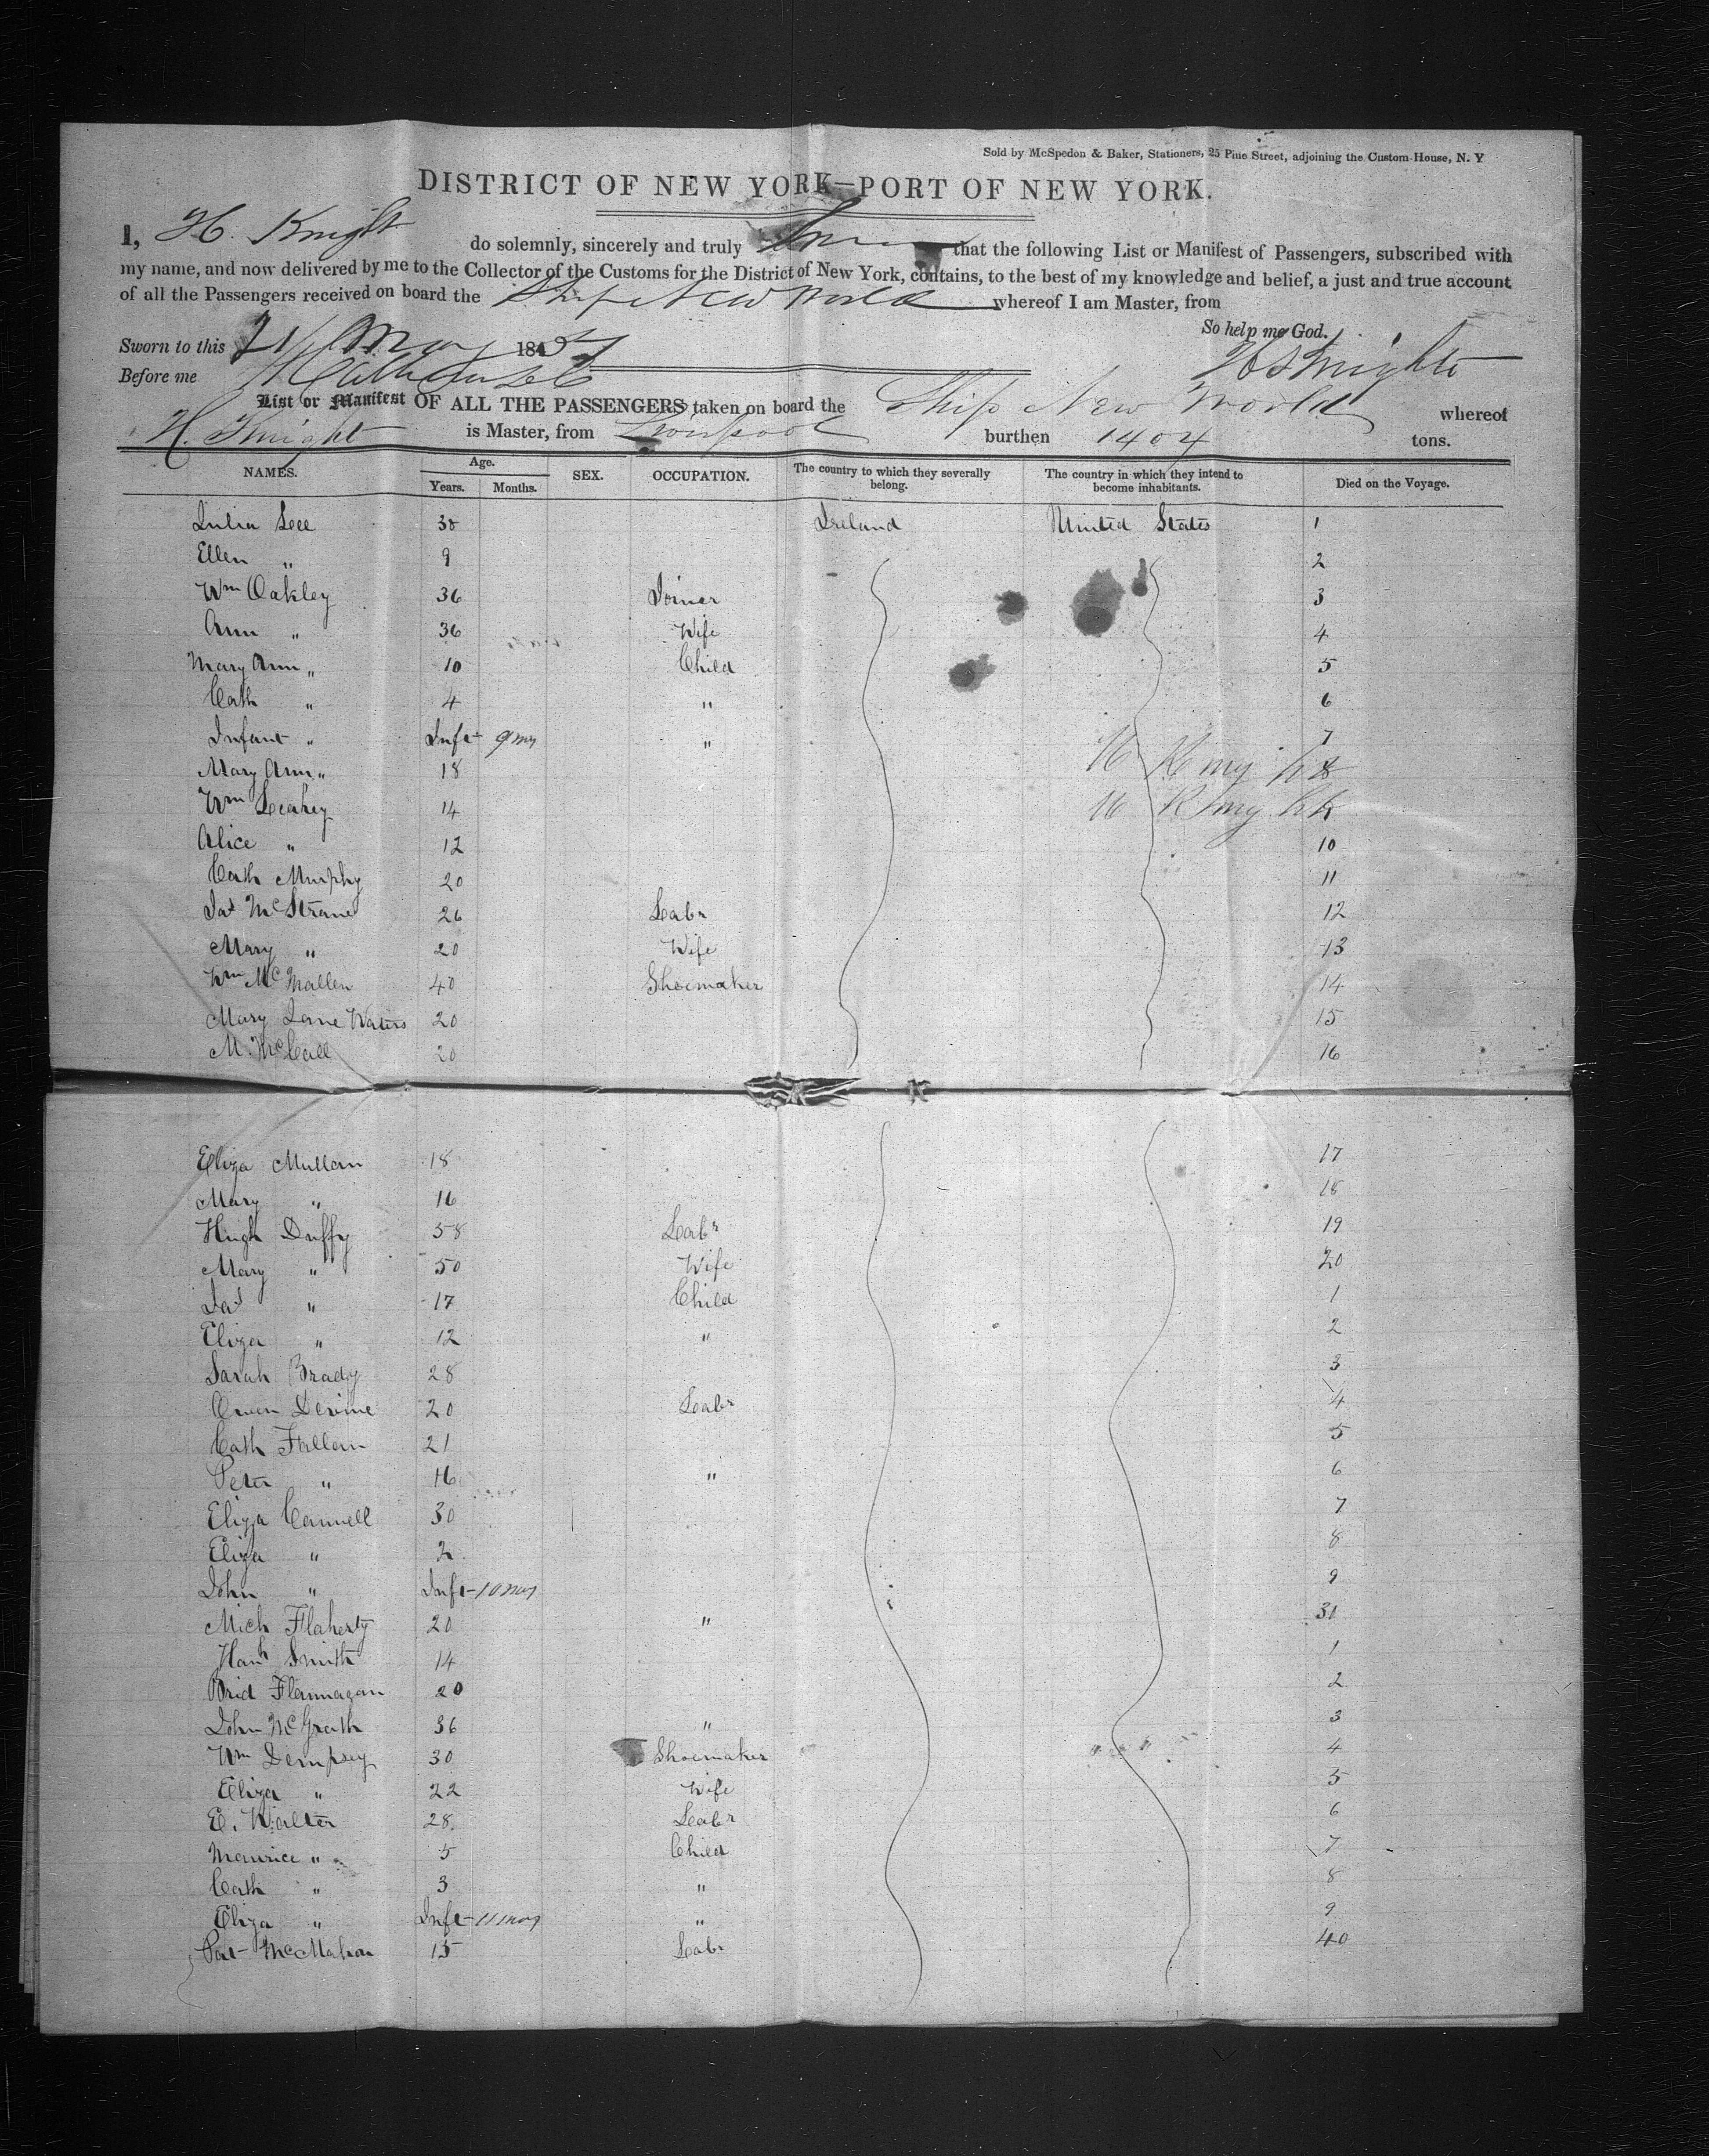 Sold by McSpedon & Baker, Stationers, 25 Pine Street, adjoining the Custom-House, N. Y
DISTRICT OF NEW YORK—PORT OF NEW YORK.
I, H. Knight do solemnly, sincerely and truly that the following List or Manifest of Passengers, subscribed with
my name, and now delivered by me to the Collector of the Customs for the District of New York, contains, to the best of my knowledge and belief, a just and true account
of all the Passengers received on board the Ship New World whereof I am Master, from
So help me God.
Sworn to this 21 May 185
H Knight
Before me
List or Manifest OF ALL THE PASSENGERS taken on board the Ship New World whereof
H. Knight is Master, from Liverpool burthen 1404 tons.
NAMES. Age. Years. Months. SEX. OCCUPATION. The country to which they severally belong. The country in which they intend to become inhabitants. Died on the Voyage.
Julia Lee 38 Ireland United States 1
Ellen " 9 2
Wm Oakley 36 Joiner 3
Ann " 36 Wife 4
Mary Ann " 10 Child 5
Cath " 4 " 6
Infant " Inft 9 mos " 7
Mary Ann " 18
Wm Leahey 14
Alice " 12 10
Cath Murphy 20 11
Jas McStrane 26 Labr 12
Mary " 20 Wife 13
Wm McMallen 40 Shoemaker 14
Mary Jane Waters 20 15
M. McCall 20 16
Eliza Mullan 18 17
Mary " 16 18
Hugh Duffy 58 Labr 19
Mary " 50 Wife 20
Jas " 17 Child 1
Eliza " 12 " 2
Sarah Brady 28 3
Owen Devine 20 Labr 4
Cath Fallan 21 5
Peter " 16 " 6
Eliza Cannell 30 7
Eliza " 2 8
John " Inft 10 mos 9
Mich Flaherty 20 " 30
Hanh Smith 14 1
Brid Flannagan 20 2
John McGrath 36 " 3
Wm Dempsey 30 Shoemaker 4
Eliza " 22 Wife 5
E. Walter 28 Labr 6
Maurice " 5 Child 7
Cath " 3 " 8
Eliza " Inft 11 mos " 9
Pat McMahon 15 Labr 40